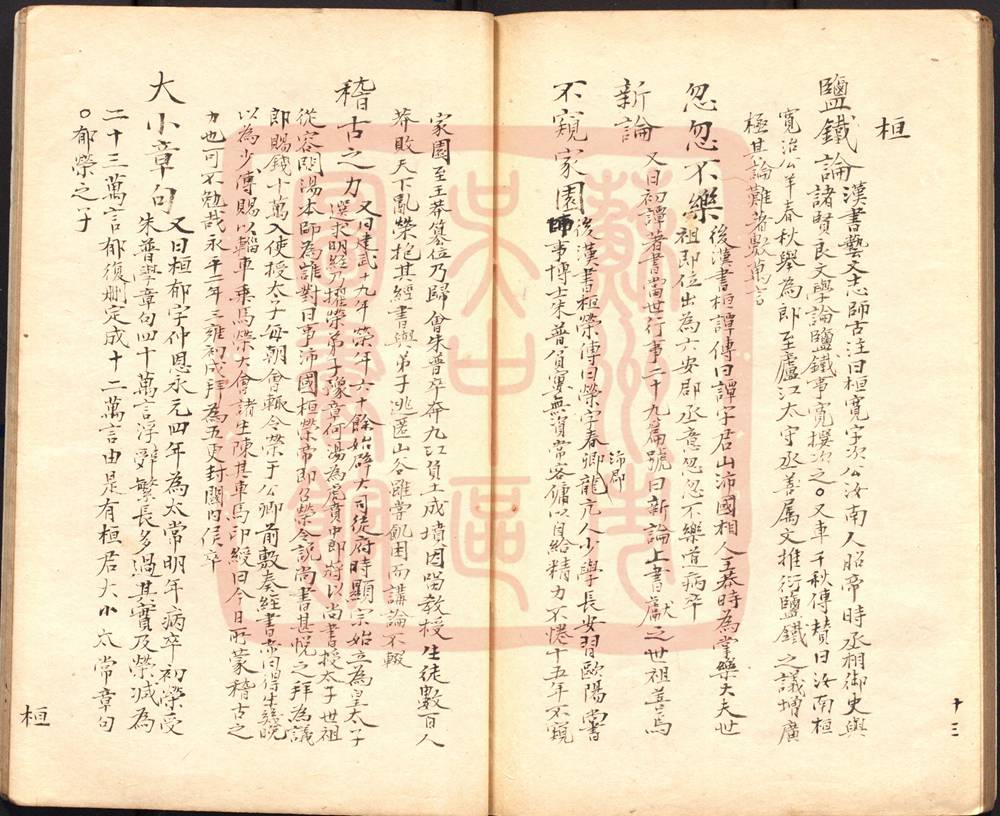 桓
鹽鐵論漢書藝文志師古注曰桓寬字次公汝南人昭帝時丞相御史與
諸賢良文學論鹽鐵事寬撰次之〇又車千秋傳贊曰汝南桓
寬治公羊春秋舉為郎至廬江太守丞善属文推衍鹽鐵之議增廣
極其論難著數萬言
忽忽不樂後漢書桓譚傳曰譚字君山沛國相人王莽時為掌樂大夫世
祖即位出為六安郡丞意忽忽不樂道病卒
新論又曰初譚著書當世行事二十九篇號曰新論上書獻之世祖善焉
不窺家園後漢書桓榮傳曰榮字春卿沛郡龍亢人少學長安習歐陽尚書
師事博士朱普貧窶無資常客傭以自給精力不惓十五年不窺
十三
家園至王莽篡位乃歸會朱普卒榮奔九江負土成墳因留教授生徒數百人
莽敗天下亂榮抱其經書與弟子逃匿山谷雖常飢困而講論不輟
稽古之力又曰建武十九年榮年六十餘始辟大司徒府時顯宗始立為皇太子
選求明經乃擢榮弟子豫章何湯為虎賁中郎將以尚書授太子世祖
從容問湯本師為誰對曰事沛國桓榮帝即召榮令說尚書甚悅之拜為議
郎賜錢十萬入使授太子每朝會輒令榮于公卿前敷奏經書帝曰得生幾晚
以為少傅賜以輜車乘馬榮大會諸生陳其車馬印綬曰今日所蒙稽古之
力也可不勉哉永平二年三雍初成拜為五更封關內侯卒
大小章句又曰桓郁字仲恩永元四年為太常明年病卒初榮受
朱普學章句四十萬言浮辭繁長多過其實及榮減為
二十三萬言郁復删定成十二萬言由是有桓君大小太常章句
〇郁榮之子
桓